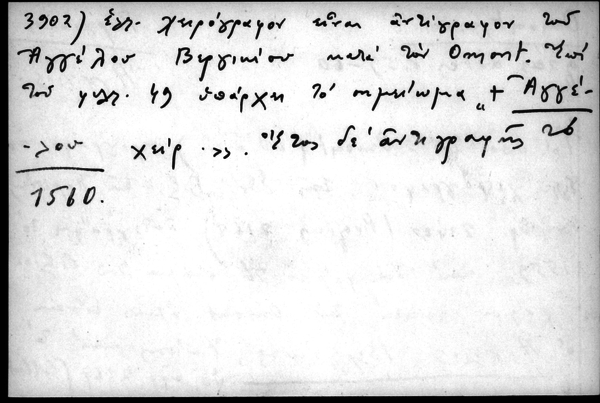 3902) ἑλλ. χειρόγραφον εἶναι ἀντίγραφον τοῦ
Ἀγγέλου Βεργικίου κατὰ τὸν Omont. Ἐπὶ
τοῦ φυλλ. 49 ὑπάρχει τὸ σημείωμα „+ Ἀγγέ-
-λου χείρ ». Ἔτος δὲ ἀντιγραφῆς τὸ
1560.